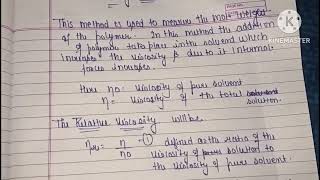 This method is used to measure the mol. weight
of the polymer. In this method the addition
of polymer take place in the solvent which
increase the viscosity & due to it internal
forces increase.
Here η0 = Viscosity of pure solvent
η = Viscosity of the total solution.
The Relative Viscosity will be
ηr = η/η0 - ① defined as the ratio of the
viscosity of solution to
the viscosity of pure solvent.
KINEMASTER